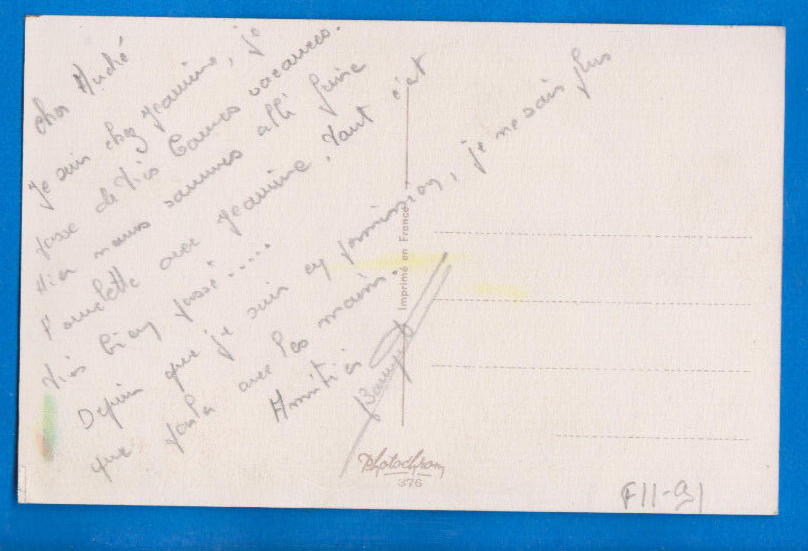 Cher André
Je suis chez Jeannine, je
passe de très bonnes vacances.
Hier nous sommes allé faire
l'omelette avec Jeannine, tout c'est
très bien passé.....
Depuis que je suis en permission, je ne sais plus
que parler avec les mains.
Amitiés
Imprimé en France
Photochrom
376
F11-91